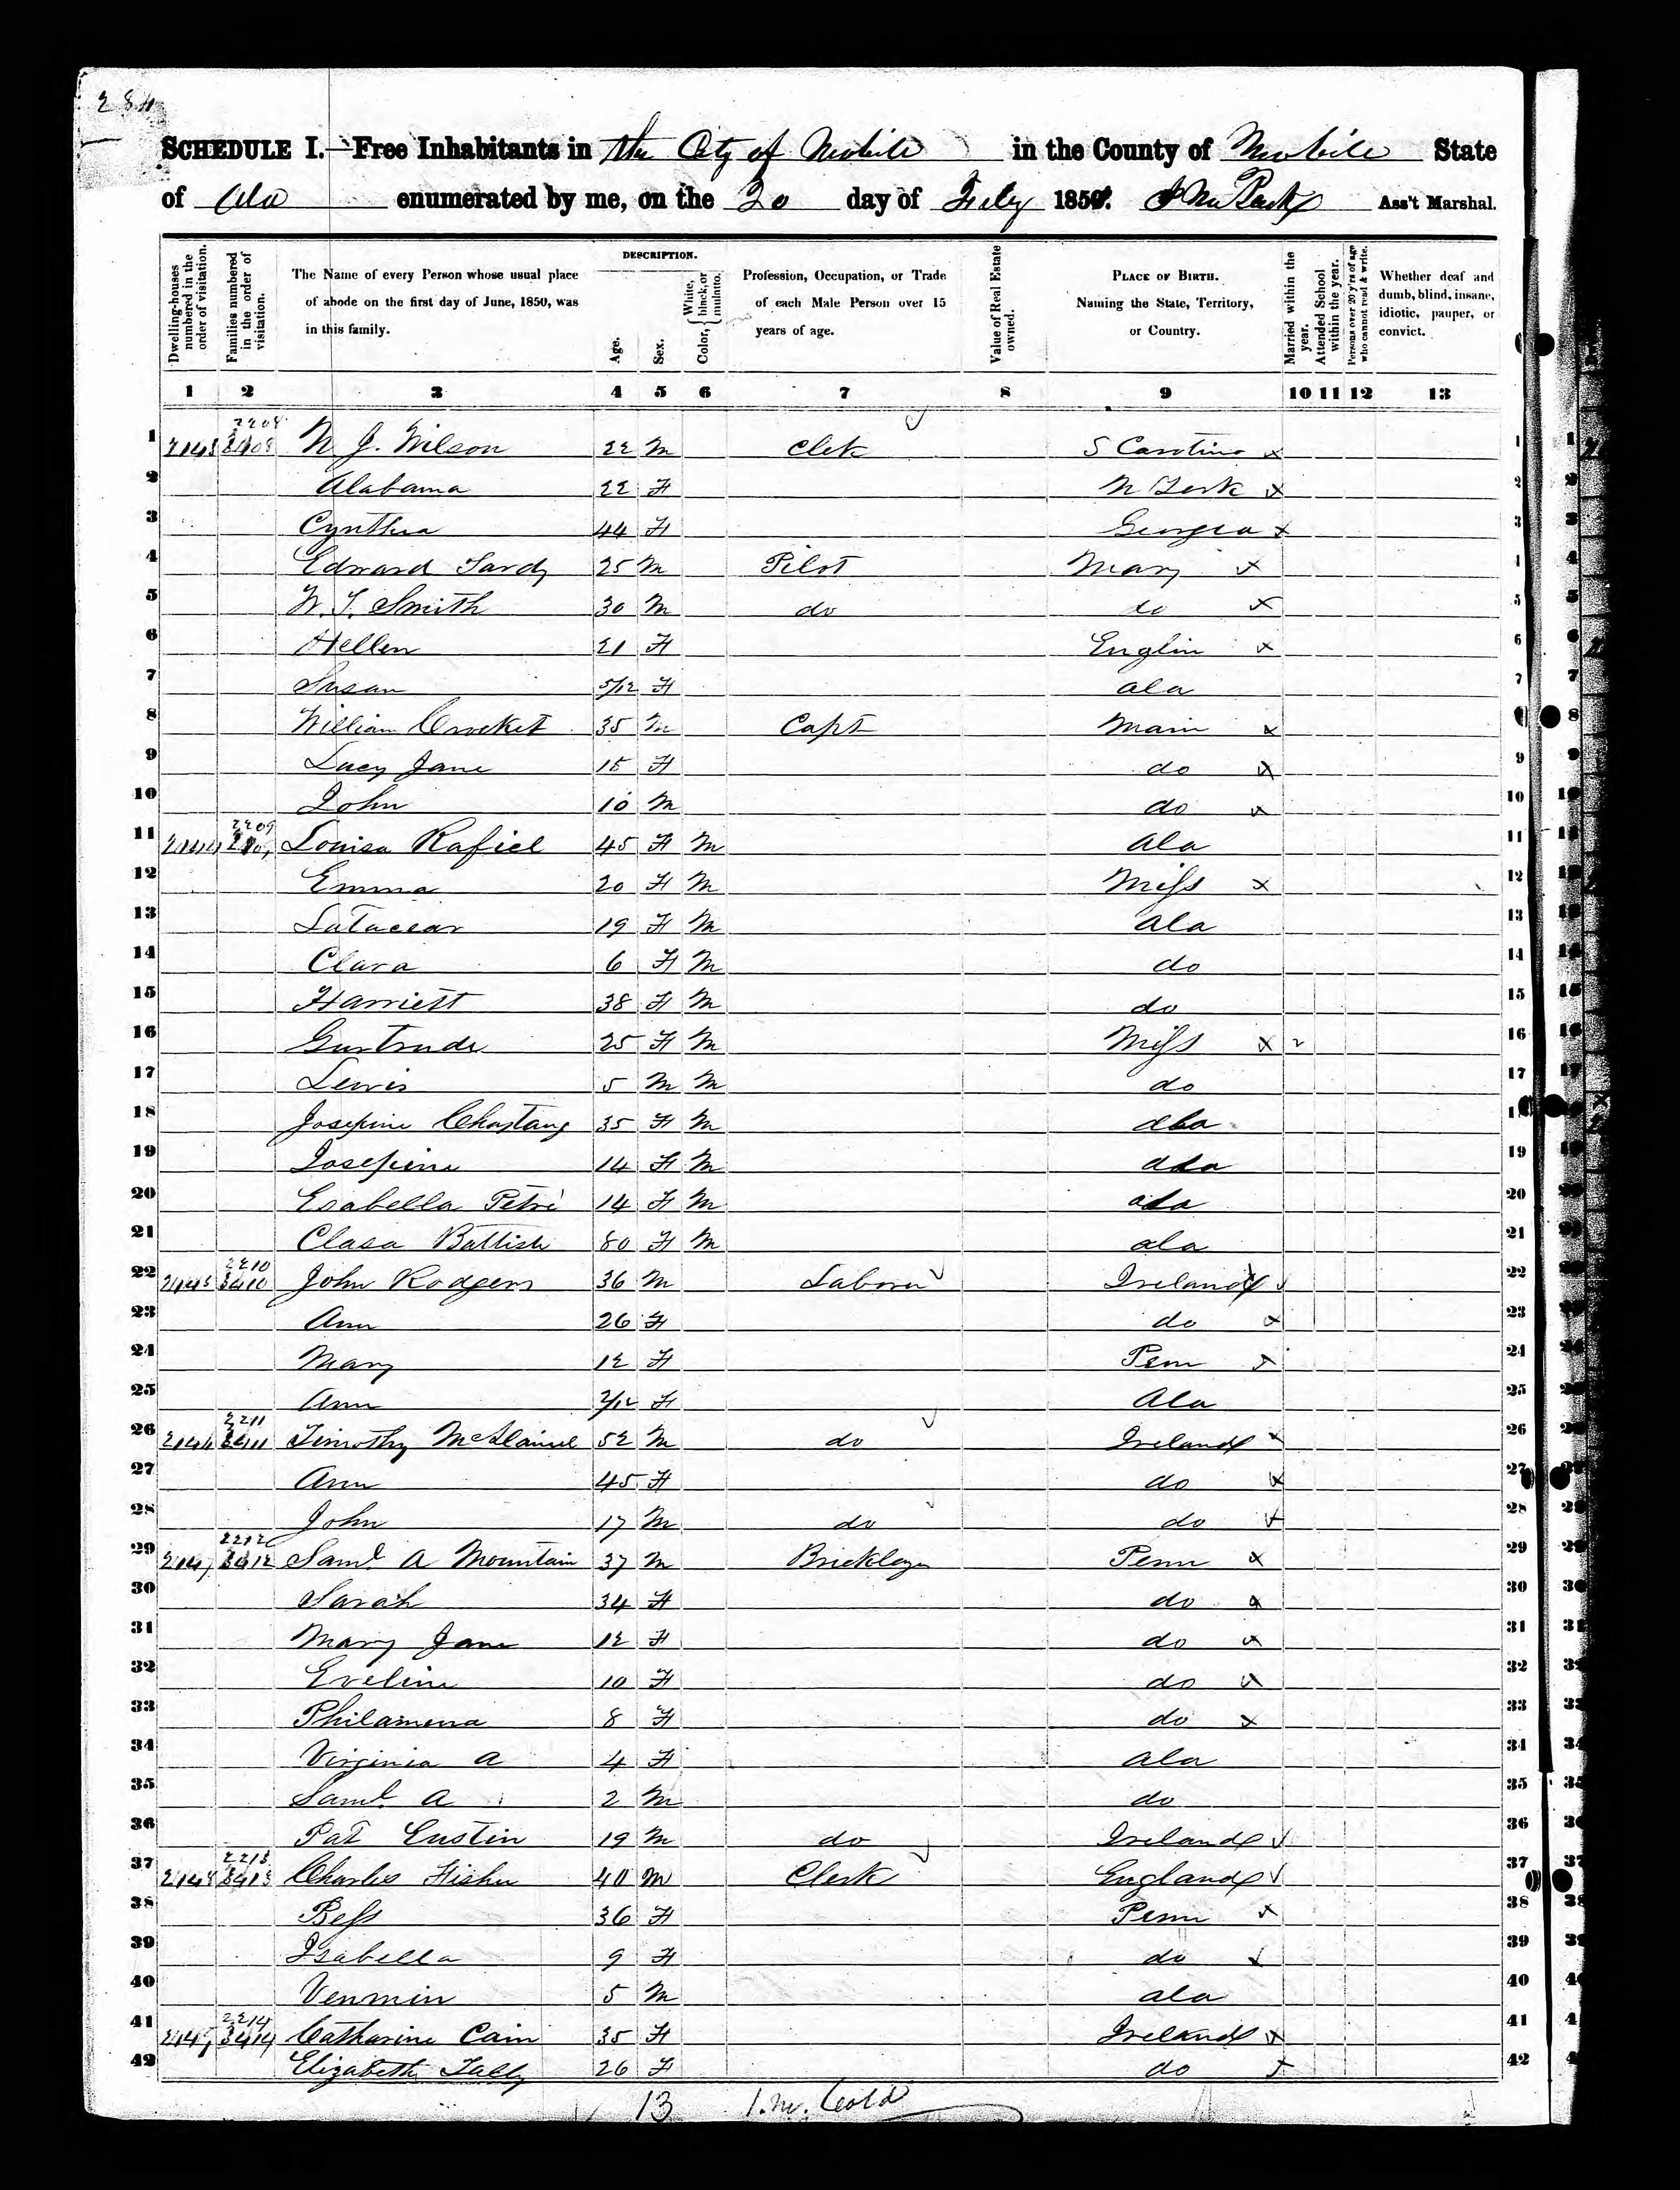 284
SCHEDULE I.—Free Inhabitants in the City of Mobile in the County of Mobile State
of Ala enumerated by me, on the 20 day of Feby 1850. Ass't Marshal.
Dwelling-houses numbered in the order of visitation.
Families numbered in the order of visitation.
The Name of every Person whose usual place of abode on the first day of June, 1850, was in this family.
DESCRIPTION.
Age.
Sex.
Color, { White, black, or mulatto.
Profession, Occupation, or Trade of each Male Person over 15 years of age.
Value of Real Estate owned.
PLACE OF BIRTH. Naming the State, Territory, or Country.
Married within the year.
Attended School within the year.
Persons over 20 y'rs of age who cannot read & write.
Whether deaf and dumb, blind, insane, idiotic, pauper, or convict.
1 2 3 4 5 6 7 8 9 10 11 12 13
2208
1 2143 N J. Wilson 22 M Clek S Carolina x 1
2 Alabama 22 F N York x 2
3 Cynthia 44 F Georgia x 3
4 Edward Tardy 25 M Pilot Mary x 4
5 W. T. Smith 30 M do do x 5
6 Hellen 21 F Englin x 6
7 Susan 5/12 F Ala 7
8 William Crocket 35 M Capt Main x 8
9 Lucy Jane 15 F do x 9
10 John 10 M do x 10
2209
11 2144 Louisa Rafiel 45 F M Ala 11
12 Emma 20 F M Miss x 12
13 19 F M Ala 13
14 Clara 6 F M do 14
15 Harriett 38 F M do 15
16 Gurtrude 25 F M Miss x 16
17 Lewis 5 M M do 17
18 Josepine Chastang 35 F M Ala 18
19 Josepine 14 F M Ala 19
20 Esabella Petri 14 F M Ala 20
21 Clasa Battiste 80 F M Ala 21
2210
22 2145 John Rodgers 36 M Labores Ireland x 22
23 Ann 26 F do x 23
24 Mary 12 F Penn x 24
25 Ann 2/12 F Ala 25
2211
26 2146 Timothy McDaniel 52 M do Ireland x 26
27 Ann 45 F do x 27
28 John 17 M do do x 28
2212
29 2147 Saml A Mountain 37 M Bricklayer Penn x 29
30 Sarah 34 F do x 30
31 Mary Jane 12 F do x 31
32 Eveline 10 F do x 32
33 Philamena 8 F do x 33
34 Virginia A 4 F Ala 34
35 Saml A 2 M do 35
36 Pat Custin 19 M do Ireland x 36
2213
37 2148 Charles Fisher 40 M Clerk England x 37
38 Bess 36 F Penn x 38
39 Isabella 9 F do x 39
40 Venmin 5 M Ala 40
2214
41 2149 Catharine Cain 35 F Ireland x 41
42 Elizabeth Tally 26 F do x 42
13